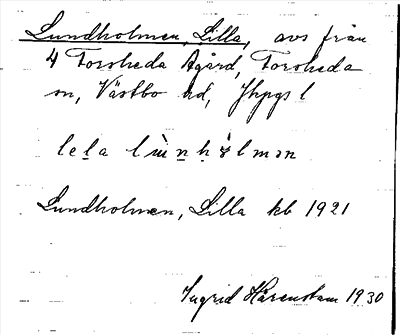 Lundholmen, Lilla, avs från
4 Forsheda Agård, Forsheda
sn, Västbo hd, Jkpgs l
Lundholmen, Lilla kb 1921
Ingrid Härenstam 1930